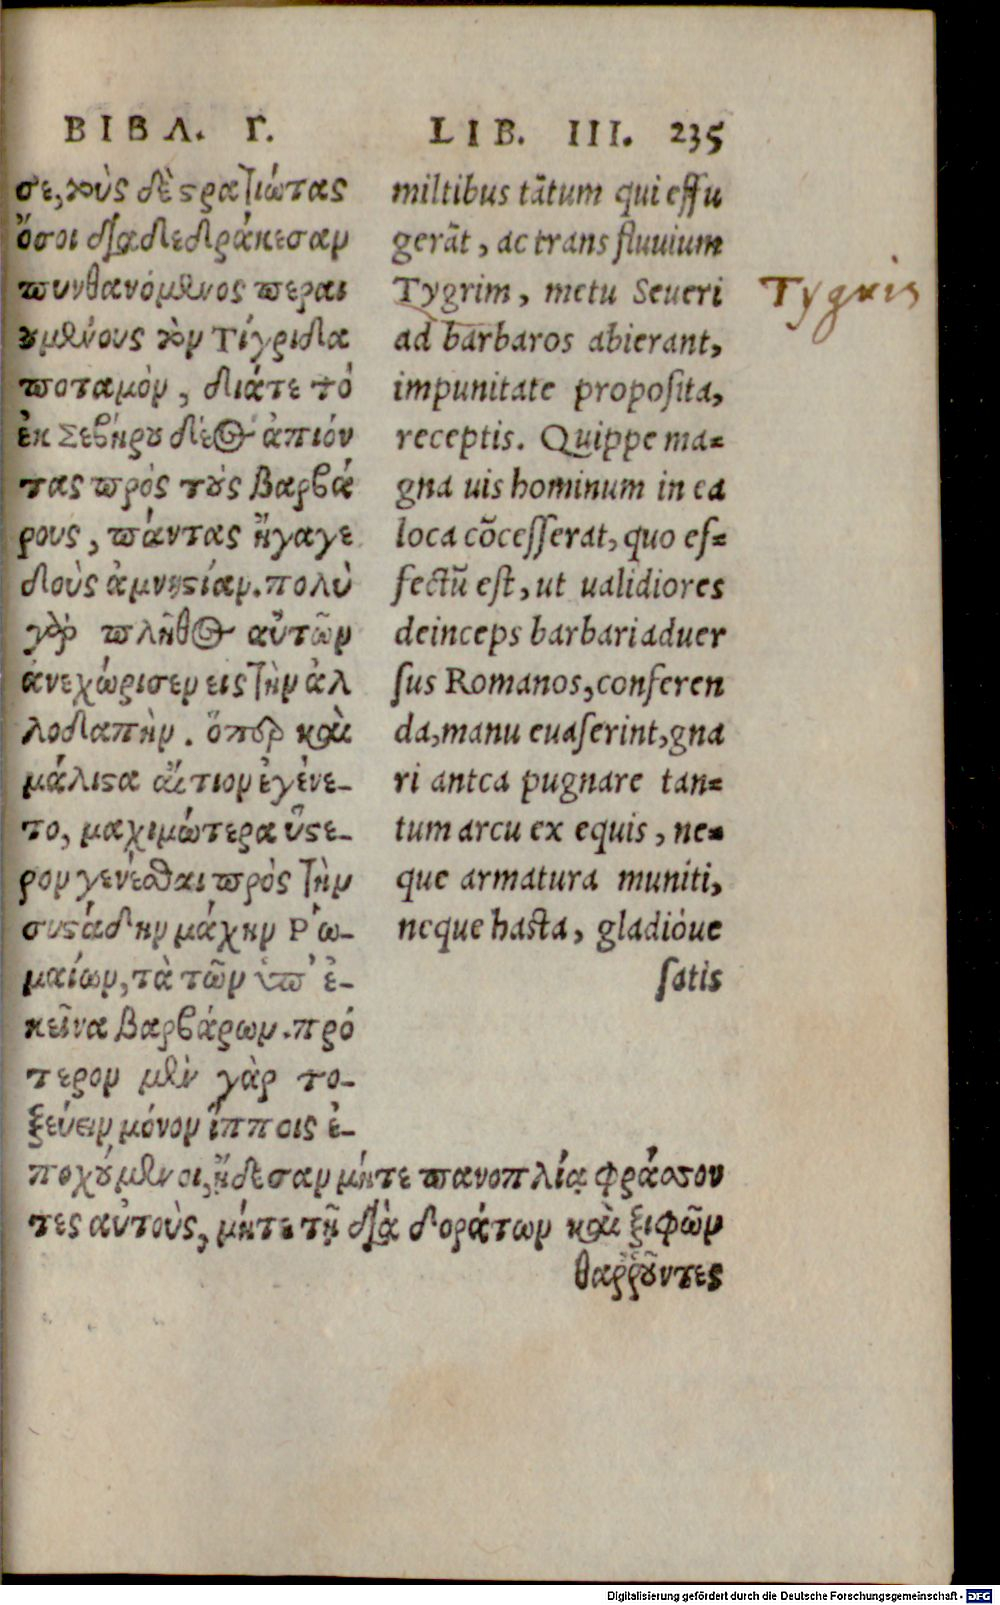 ΒΙΒΛ. Γ.
σε, τοὺς δὲ στρατιώτας
ὅσοι διαδεδράκεσαν
πυνθανόμενος περαι
ουμένους τὸν Τίγριδα
ποταμὸν, διά τε τὸ
ἐκ Σεβήρου δέος ἀπιόν
τας πρὸς τοὺς βαρβά
ρους, πάντας ἤγαγε
διοὺς ἀμνηστίαν. πολὺ
γὰρ πλῆθος αὐτῶν
ἀνεχώρισεν εἰς τὴν ἀλ
λοδαπὴν. ὅπερ καὶ
μάλιστα αἴτιον ἐγένε-
το, μαχιμώτερα ὕστε-
ρον γενέσθαι πρὸς τὴν
συστάδην μάχην Ῥω-
μαίων, τὰ τῶν ὑπ' ἐ-
κεῖνα βαρβάρων. πρό
τερον μὲν γὰρ το-
ξεύειν μόνον ἵπποις ἐ-
ποχούμενοι, ᾔδεσαν μήτε πανοπλίᾳ φράσσον
τες αὐτοὺς, μήτε τῇ διὰ δοράτων καὶ ξιφῶν
θαῤῥοῦντες
LIB. III. 235
miltibus tātum qui effu
gerāt, ac trans fluuium
Tygrim, metu Seueri
ad barbaros abierant,
impunitate proposita,
receptis. Quippe ma=
gna uis hominum in ea
loca cōcesserat, quo ef=
fectū est, ut ualidiores
deinceps barbari aduer
sus Romanos, conferen
da, manu euaserint, gna
ri antea pugnare tan=
tum arcu ex equis, ne=
que armatura muniti,
neque hasta, gladióue
satis
Tygris
Digitalisierung gefördert durch die Deutsche Forschungsgemeinschaft - DFG